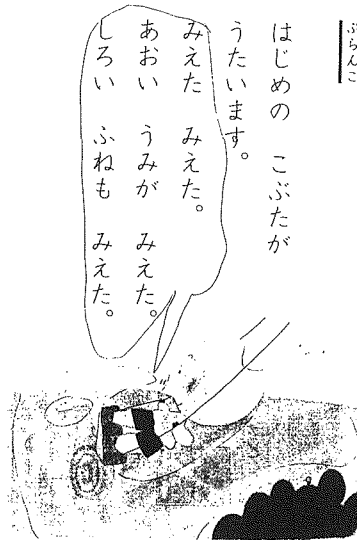 ぶらんこ
はじめの こぶたが
うたいます。
みえた みえた。
あおい うみが みえた。
しろい ふねも みえた。